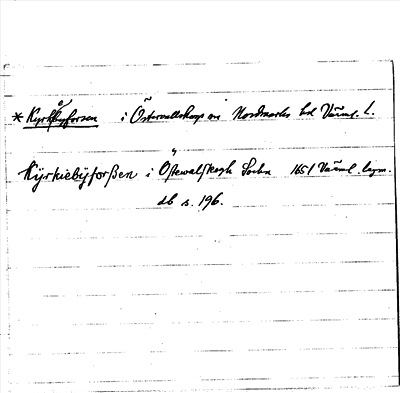 * Kyrkbyforsen i Östervallskogs sn Nordmarks hd Värml. l.
Kÿrkiebÿforßen i Ö̈stewalskogh Sochn 1651 Värml. lagm.
db s. 196.